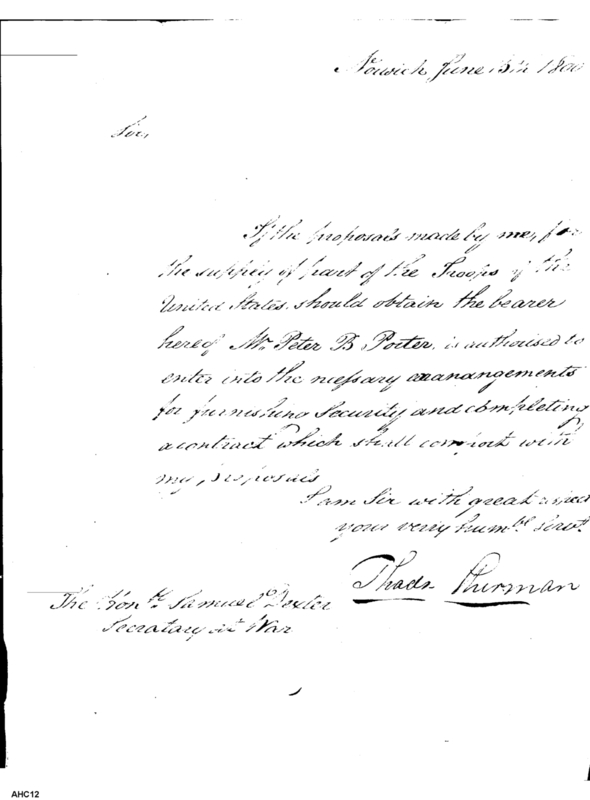 Norwich June 15th 1800
Sir,
If the proposals made by me, for
the supply of part of the Troops of the
United States, should obtain the bearer
hereof Mr. Peter B. Porter, is authorised to
enter into the necessary arrangements
for furnishing Security and completing
a contract which shall comport with
my proposals
I am Sir with great respect
your verry humble Servt.
Thads. Thurman
The Honble. Samuel Dexter
Secratary at War
AHC12